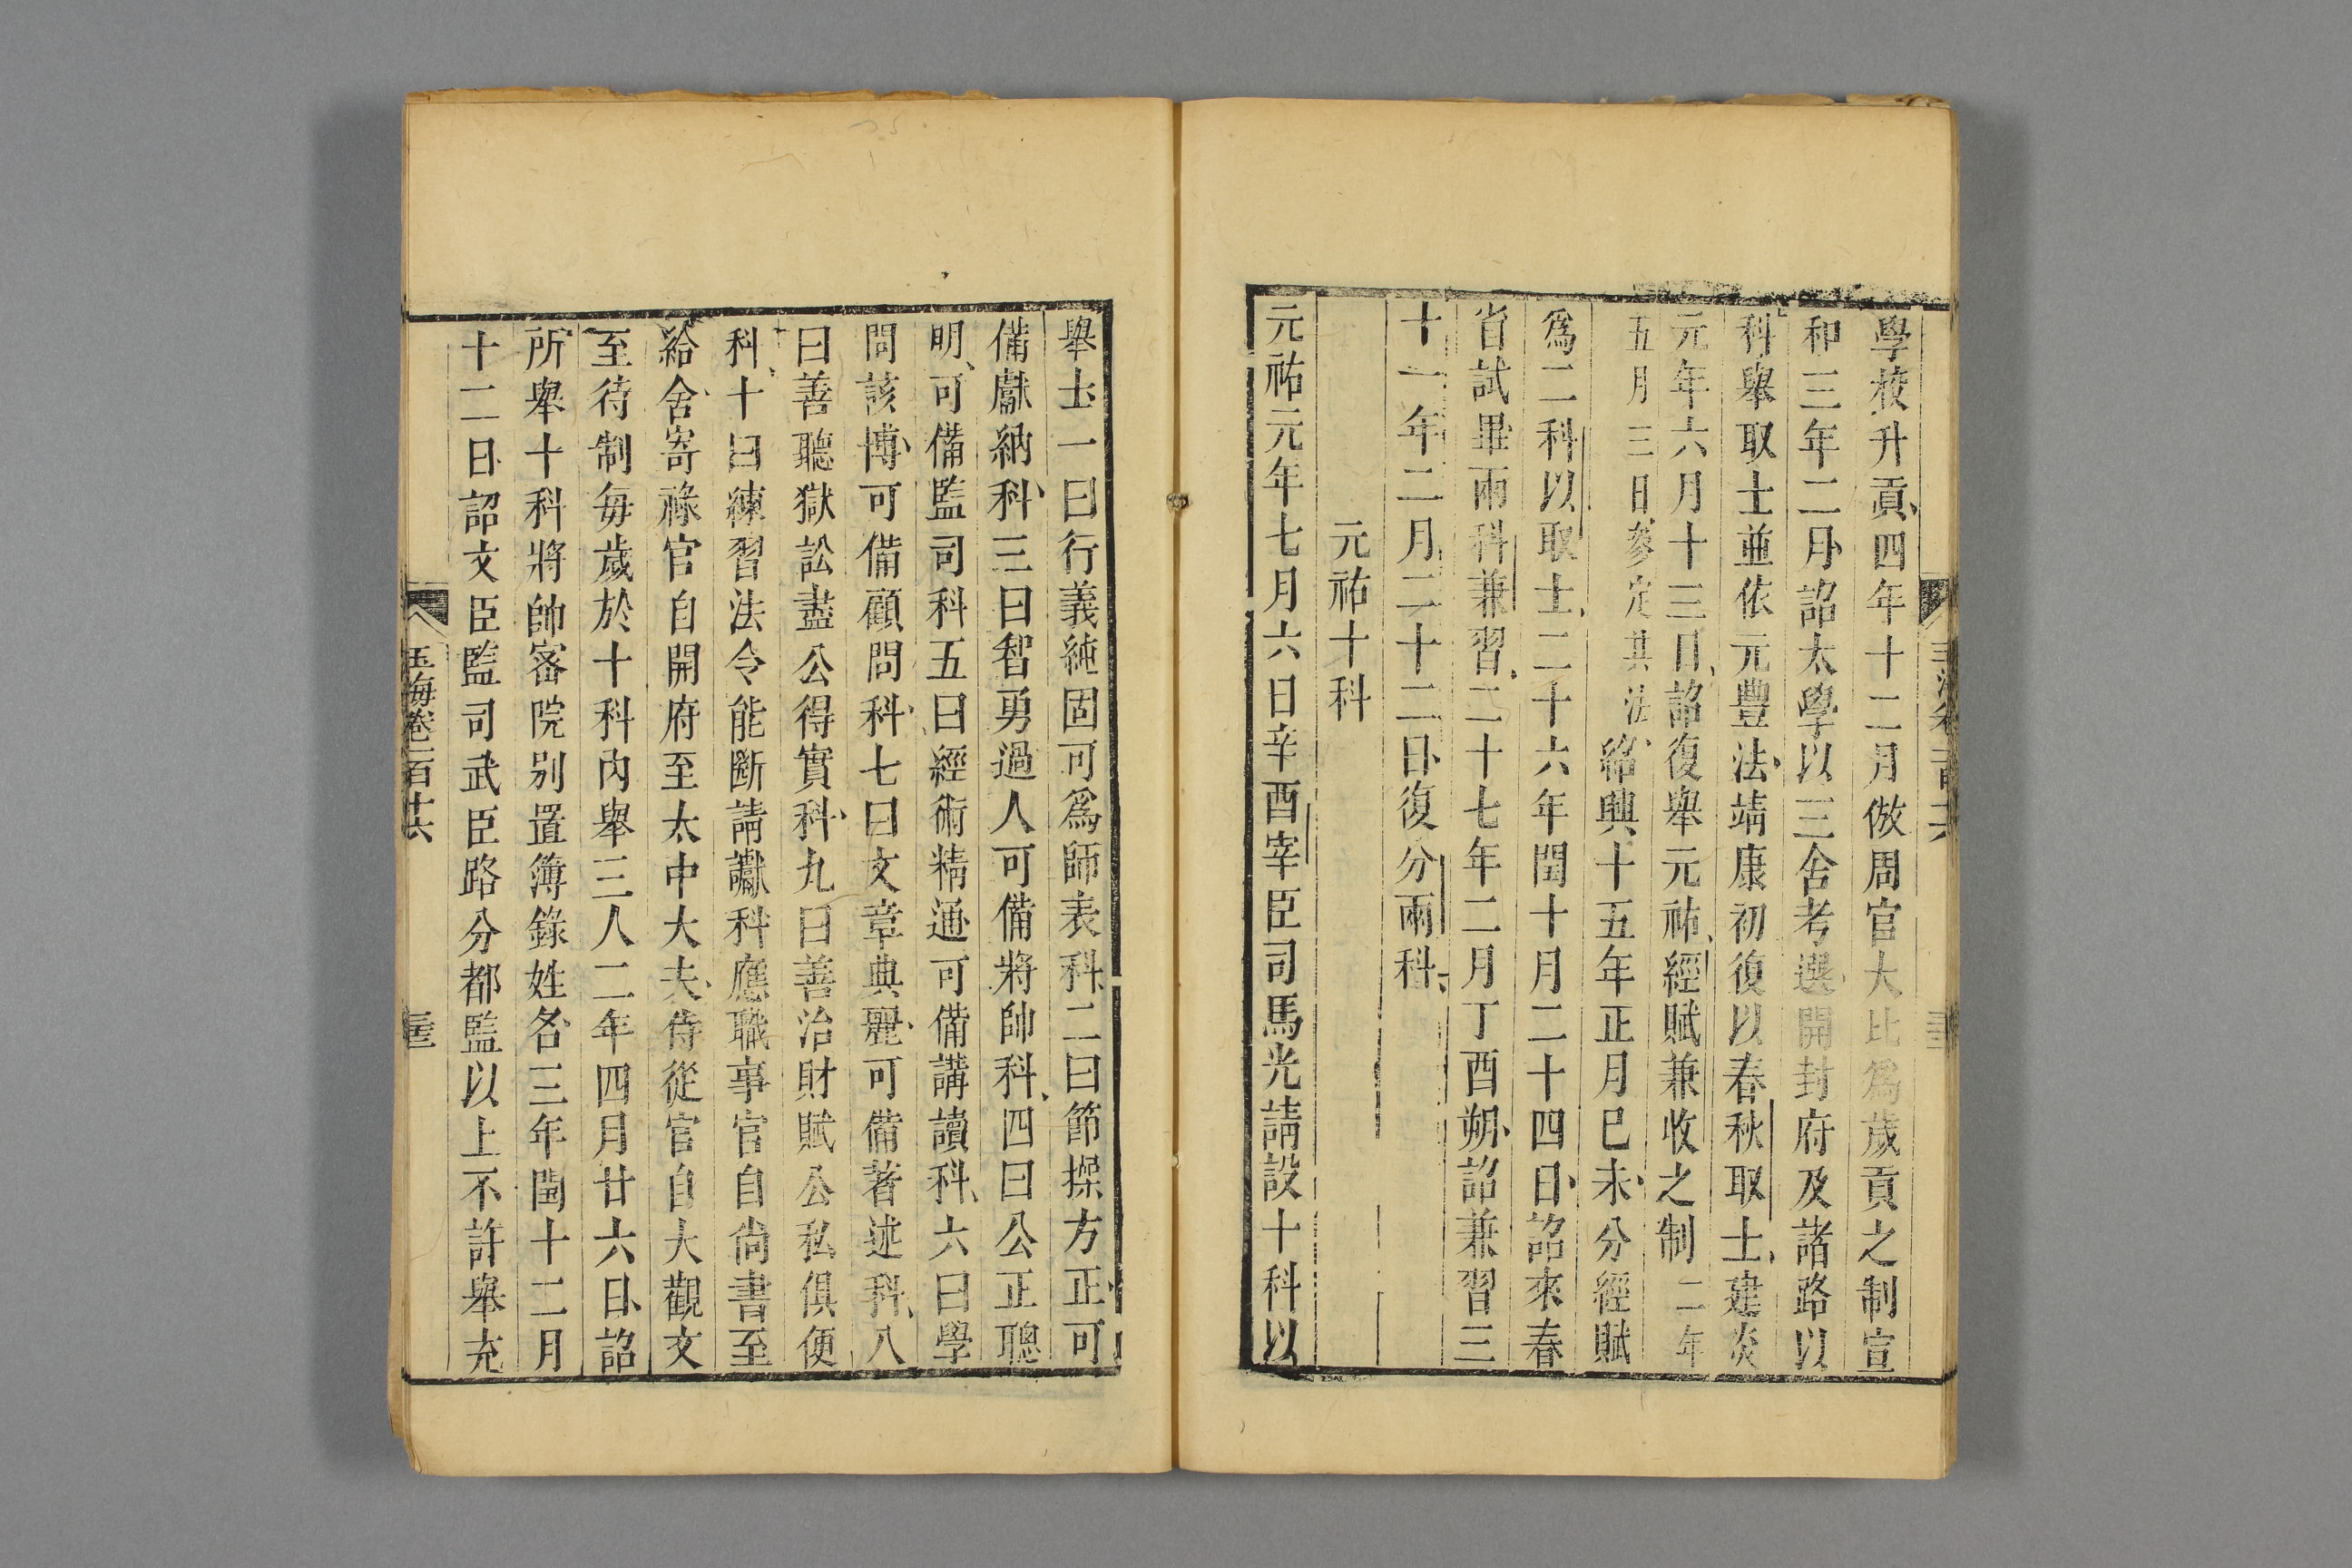 學校升貢四年十二月倣周官大比爲歲貢之制宣
和三年二月詔太學以三舍考選開封府及諸路以
科舉取士並依元豐法靖康初復以春秋取士建炎
元年六月十三日詔復舉元祐經賦兼收之制二年
五月三日參定其法紹興十五年正月巳未分經賦
爲二科以取士二十六年閏十月二十四日詔來春
省試畢兩科兼習二十七年二月丁酉朔詔兼習三
十一年二月二十二日復分兩科
元祐十科
元祐元年七月六日辛酉宰臣司馬光請設十科以
舉士一曰行義純固可爲師表科二曰節操方正可
備獻納科三曰智勇過人可備將帥科四曰公正聰
明可備監司科五曰經術精通可備講讀科六曰學
問該博可備顧問科七曰文章典麗可備著述科八
曰善聽獄訟盡公得實科九曰善治財賦公私俱便
科十曰練習法令能斷請讞科應職事官自尚書至
給舍寄祿官自開府至太中大夫侍從官自大觀文
至待制每歲於十科內舉三人二年四月廿六日詔
所舉十科將帥密院別置簿錄姓名三年閏十二月
十二日詔文臣監司武臣路分都監以上不許舉充
玉海卷一百十六